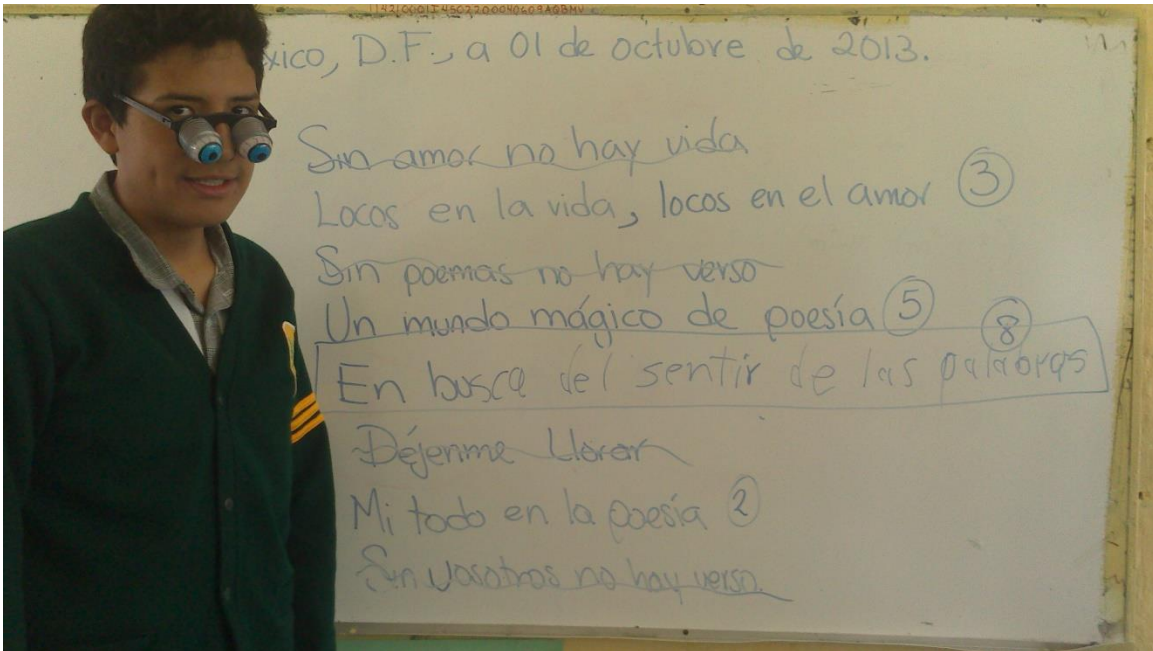 xico, D.F., a 01 de octubre de 2013.
Sin amor no hay vida
Locos en la vida, locos en el amor 3
Sin poemas no hay verso
Un mundo mágico de poesía 5
8
En busca del sentir de las palabras
Déjenme Llorar
Mi todo en la poesía 2
Sin vosotros no hay verso.